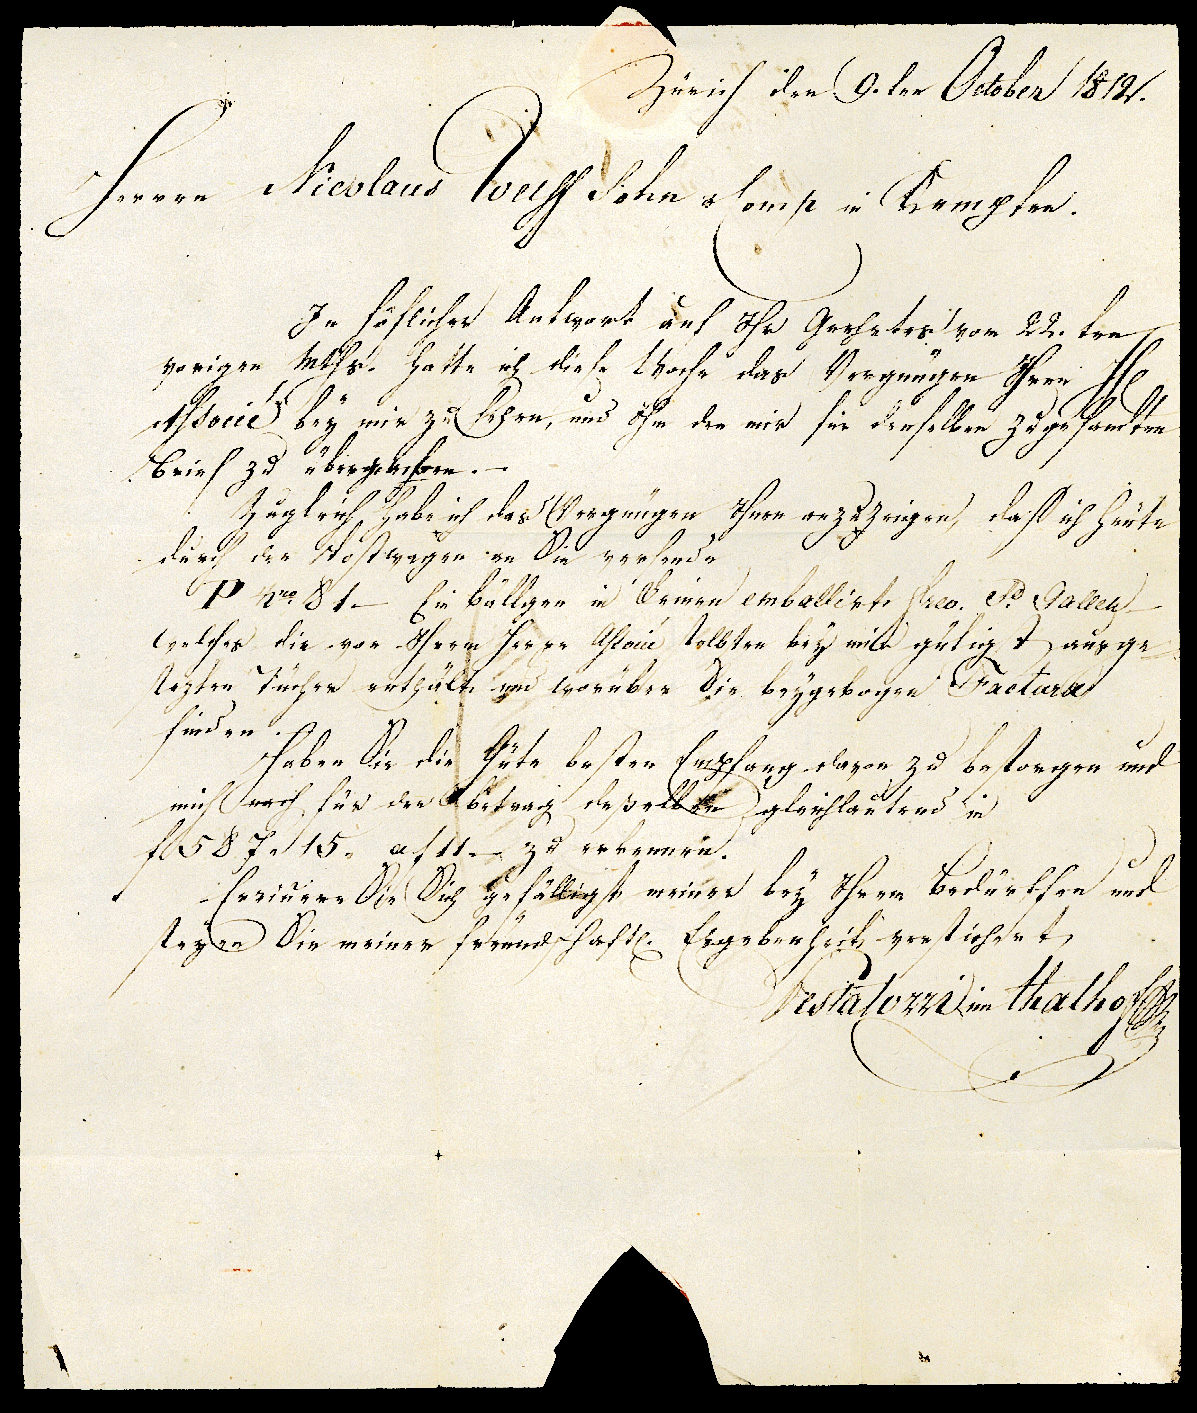 Zürich den 9.ten October 1812.
Herren Nicolaus Sohn & Comp in Kempten.
In höflicher Antwort auf Ihr Geehrtes vom 22. ten
vorigen Mths. hatte ich diese Woche das Vergnügen Ihren H
Associé bey mir zu sehen, und Ihm den mir für denselben zugesandten
Brief zu
Zugleich habe ich das Vergnügen Ihnen anzuzeigen, daß ich heute
durch den Postwagen an Sie versende
P Nro. 81 — Ein Bällgen in Leinen emballirt, frco. St Gallen —
welches die von Ihrem Herrn Associé selbsten bey mir gütigst ausge-
sezten Tücher enthält und worüber Sie beygebogen Factura
finden.
Haben Sie die Güte besten Empfang davon zu besorgen und
mich auch für den Betrag deßelben gleichlautend in
f 587. 15. zu erkennen.
Erinnern Sie Sich gefälligst meiner bey Ihrem Bedürfen und
seyen Sie meiner freundschaftl. Ergebenheit versichert
Pestalozzi im Thalhof